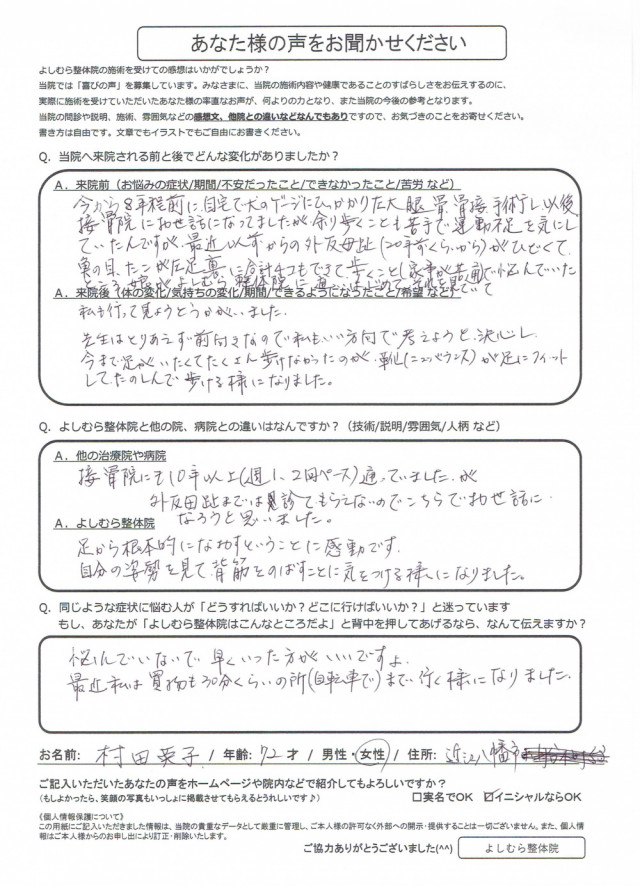 あなた様の声をお聞かせください
よしむら整体院の施術を受けての感想はいかがでしょうか？
当院では「喜びの声」を募集しています。みなさまに、当院の施術内容や健康であることのすばらしさをお伝えするのに、
実際に施術を受けていただいたあなた様の率直なお声が、何よりの力となり、また当院の今後の参考となります。
当院の問診や説明、施術、雰囲気などの感想文、他院との違いなどなんでもありですので、お気づきのことをお寄せください。
書き方は自由です。文章でもイラストでもご自由にお書きください。
Q．当院へ来院される前と後でどんな変化がありましたか？
A．来院前（お悩みの症状/期間/不安だったこと/できなかったこと/苦労 など）
今から8年程前に、自宅で犬のゲージにひっかかり左大腿骨骨接手術し以後
接骨院にお世話になってましたが余り歩くことも苦手で運動不足を気にし
ていたんですが、最近以前からの外反母趾（20年ずくらいから）がひどくて、
魚の目、たこが左足裏に合計4コもできて歩くこと（家事が普通）で悩んでいた
ところ娘がよしむら整体院に通いはじめて
A．来院後（体の変化/気持ちの変化/期間/できるようになったこと/希望 など）
私も行って見ようとうかがいました。
先生はとりあえず前向きなので私もいい方向で考えようと、決心し、
今まで足がいたくてたくさん歩けなかったのが、靴（ニューバランス）が足にフィット
してたのしんで歩ける様になりました。
Q．よしむら整体院と他の院、病院との違いはなんですか？（技術/説明/雰囲気/人柄 など）
A．他の治療院や病院
接骨院にも10年以上（週1、2回ペース）通っていました。が
外反母趾までは見診てもらえないのでこちらでお世話に
なろうと思いました。
A．よしむら整体院
足から根本的になおすということに感動です。
自分の姿勢を見て、背筋をのばすことに気をつける様になりました。
Q．同じような症状に悩む人が「どうすればいいか？どこに行けばいいか？」と迷っています
もし、あなたが「よしむら整体院はこんなところだよ」と背中を押してあげるなら、なんて伝えますか？
悩んでいないで早くいった方がいいですよ。
最近私は買物も30分くらいの所（自転車で）まで行く様になりました。
お名前: 村田英子 / 年齢: 72 才 / 男性・女性 / 住所: 近江八幡市
ご記入いただいたあなたの声をホームページや院内などで紹介してもよろしいですか？
（もしよかったら、笑顔の写真もいっしょに掲載させてもらえるとうれしいです♪） □実名でOK ☑イニシャルならOK
《個人情報保護について》
この用紙にご記入いただきました情報は、当院の貴重なデータとして厳重に管理し、ご本人様の許可なく外部への開示・提供することは一切ございません。また、個人情
報はご本人様からのお申し出により訂正・削除いたします。
ご協力ありがとうございました(^^) よしむら整体院